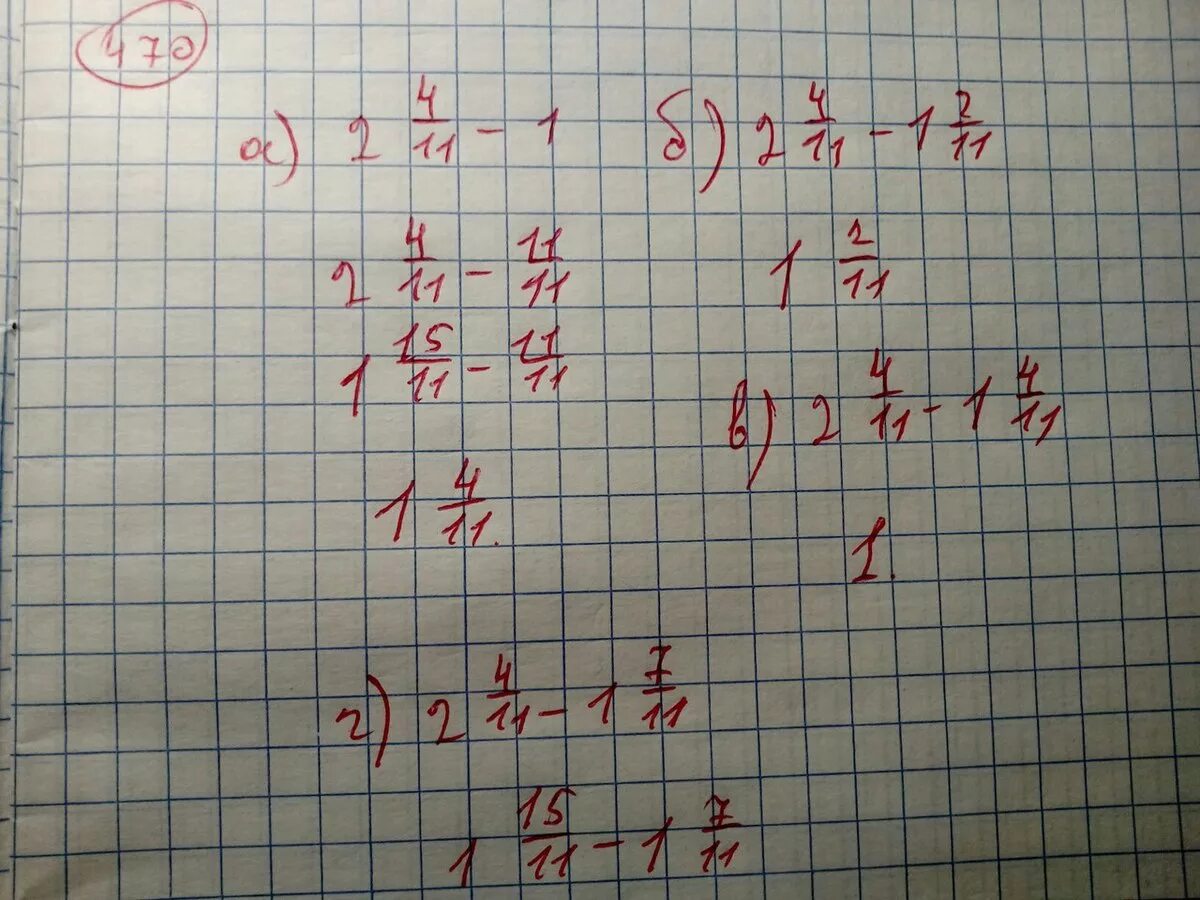 470
а) 2 4/11 - 1
2 4/11 - 11/11
1 15/11 - 11/11
1 4/11.
б) 2 4/11 - 1 2/11
1 2/11
в) 2 4/11 - 1 4/11
1.
г) 2 4/11 - 1 7/11
1 15/11 - 1 7/11